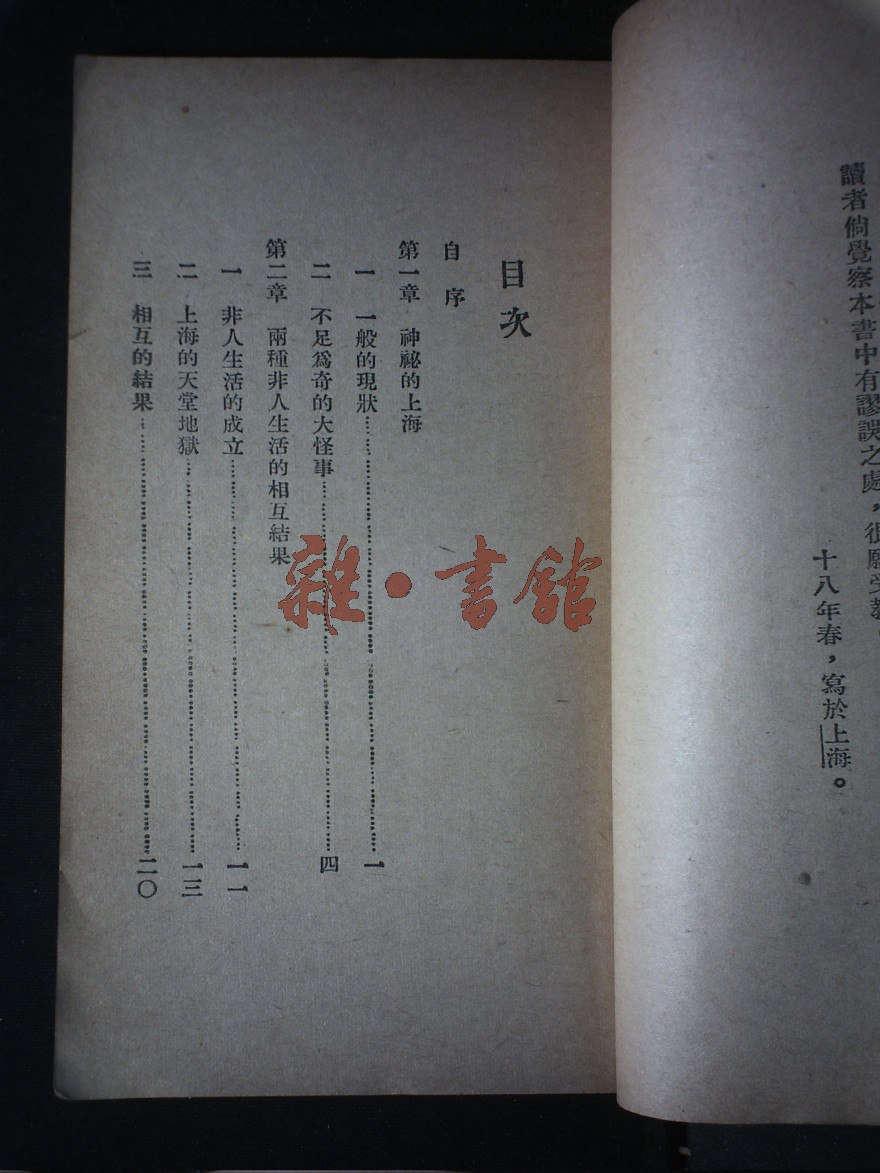 讀者倘覺察本書中有謬誤之處，很願受教。
十八年春，寫於上海。
目次
自序
第一章 神祕的上海
一 一般的現狀 一
二 不足爲奇的大怪事 四
第二章 兩種非人生活的相互結果
一 非人生活的成立 一一
二 上海的天堂地獄 一三
三 相互的結果 二〇
雜·書館